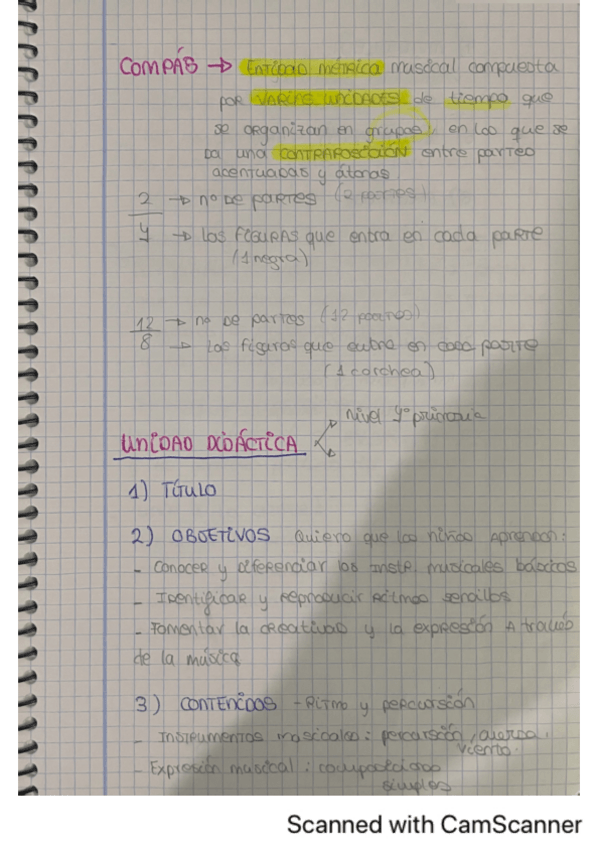 COMPÁS → ENTIDAD MÉTRICA musical compuesta
por VARIAS UNIDADES de tiempo que
se organizan en grupos, en los que se
da una CONTRAPOSICIÓN entre partes
acentuadas y átonas.
2 → nº DE PARTES (2 partes)
4 → las FIGURAS que entra en cada PARTE
(1 negra)
12 → nº de partes (12 partes)
8 → las figuras que entra en cada parte
(1 corchea)
Nivel 4º primaria
UNIDAD DIDÁCTICA
1) TÍTULO
2) OBJETIVOS Quiero que los niños aprendan:
- CONOCER y diferenciar los instr. musicales básicos
- Identificar y reproducir ritmos sencillos
- Fomentar la creatividad y la expresión a través
de la música
3) CONTENIDOS - Ritmo y percursión
- Instrumentos musicales: percursión, cuerda,
viento.
- Expresión musical: composiciones
simples
Scanned with CamScanner